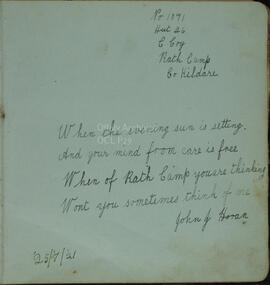 No 1091
Hut 26
C Coy
Rath Camp
Co Kildare
When the evening sun is setting.
And your mind from care is free
When of Rath Camp you are thinking
Wont you sometimes think of me
John J Horan
25/7/21